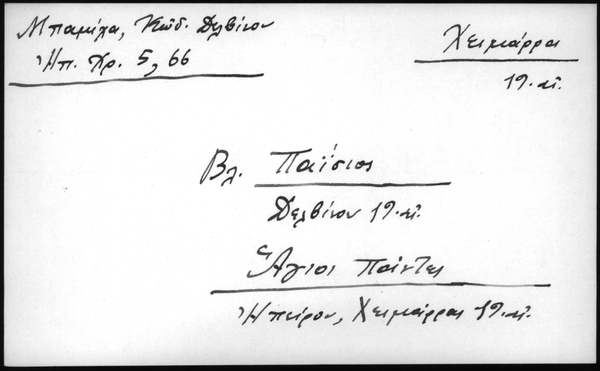 Μπαμίχα, Κώδ. Δελβίνου
Ἠπ. Χρ. 5, 66
Χειμάρρα
19. αἰ.
Βλ. Παΐσιος
Δελβίνου 19. αἰ.
Ἅγιοι Πάντες
Ἠπείρου, Χειμάρρας 19. αἰ.